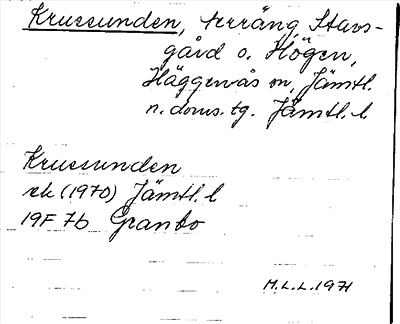 Krussunden, terräng, Stavs-
gård o. Högen,
Häggenås sn, Jämtl.
n. doms. tg. Jämtl. l.
Krussunden
ek (1970) Jämtl. l
19F 7b Granbo
M.L.L. 1971